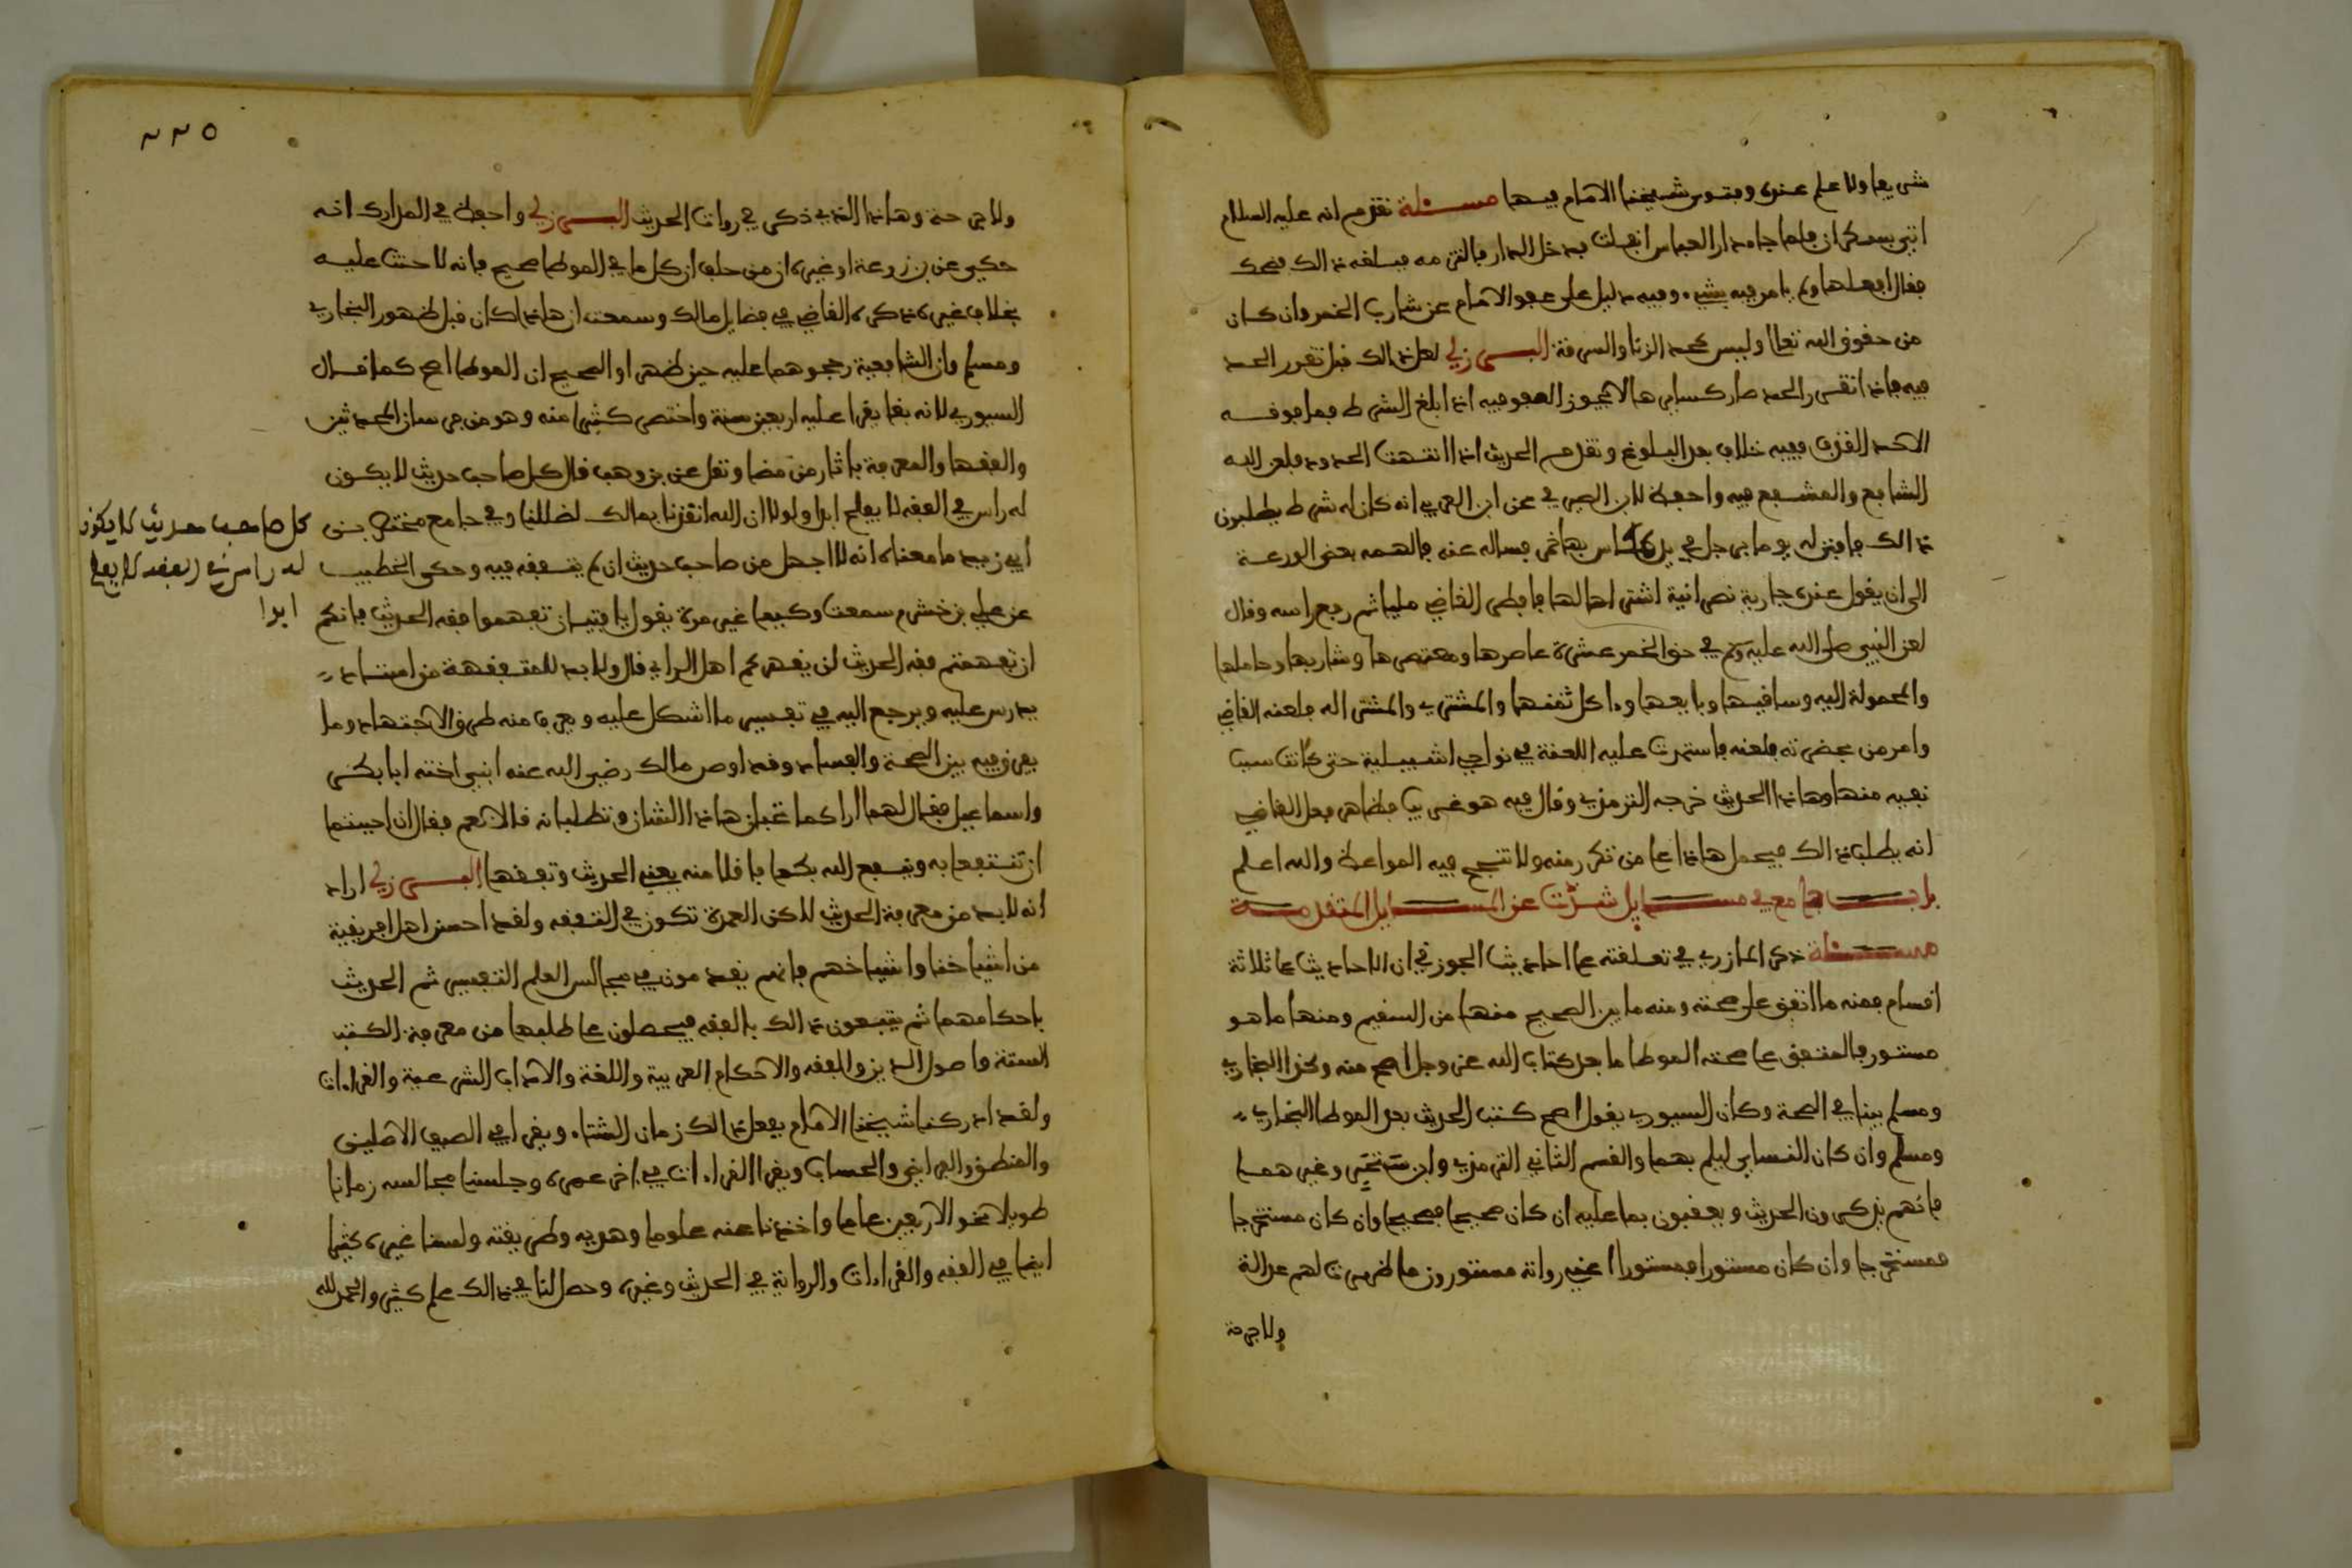 شريعا ولا علم عنده وبتوس شيخنا الامام فيها مسئلة تقدم انه عليه السلام
اتي بسكران فلما جاء دار العباس انفلت فدخل الدار فالتزمه فبلغه ذالك فضحك
فقال افعلها ولم يامر فيه بشيء وفيه دليل على عفو الامام عن شارب الخمر وان كان
من حقوق الله تعالى وليس كحد الزنا والسرقة البرزلي لعل ذالك قبل تقرر الحد
فيه فاذا تقرر الحد صار كسايرها لا يجوز العفو فيه اذا بلغ الشرط فما فوقه
الا حد القذف ففيه خلاف بعد البلوغ وتقدم الحديث اذا انتهت الحدود فلعن الله
الشافع والمشفع فيه واحفظ لابن الصيرفي عن ابن العربي انه كان له شرط يطلبون
ذالك فاقبل له يوما برجل في يده كاس بها خمر فساله عنه فالهمه بعض الوزعة
الى ان يقول عنده جارية نصرانية اشترى احالها فاطرق القاضي مليا ثم رفع راسه وقال
لعن النبي صلى الله عليه وسلم في حق الخمر عشرة عاصرها ومعتصرها وشاربها وحاملها
والمحمولة اليه وساقيها وبايعها وءاكل ثمنها والمشتري والمشترى له فلعنه القاضي
وامر من بحضرته فلعنه فاستمرت عليه اللعنة في نواحي اشبيلية حتى كانت سبب
نفيه منها وهاذا الحديث خرجه الترمذي وقال فيه هو غريب فظاهر فعل القاضي
انه يطلب ذالك فيحمل هاذا على من تكرر منه ولا تنجح فيه المواعظ والله اعلم
باب جامع في مسايل شذت عن المسايل المتقدمة
مسئلة ذكر المازري في تعلقته على احاديث الجوزقي ان الاحاديث على ثلاثة
اقسام فمنه ما اتفق على صحته ومنه ما بين الصحيح منها من السقيم ومنها ما هو
مستور فالمتفق على صحته الموطا ما بعد كتاب الله عز وجل اصح منه وكذا البخاري
ومسلم بينا في الصحة وكان السيوري يقول اصح كتب الحديث بعد الموطا البخاري
ومسلم وان كان النسايي ليلم بهما والقسم الثاني الترمذي وابن سنجر وغيرهما
فانهم يذكرون الحديث ويعقبون بما عليه ان كان صحيحا فصحيحا وان كان مستخرجا
فمستخرجا وان كان مستورا فمستورا اعني رواته مستورون ما ظهرت لهم عدالة
ولا جرحة
٢٢٥
ولا جرحة وهاذا الذي ذكر في روات الحديث البرزلي واحفظ في المدارك انه
حكى عن بن زرعة او غيره ان من حلف ان كل ما في الموطا صحيح فانه لا حنث عليه
بخلاف غيره ذكره القاضي في فضايل مالك وسمعت ان هاذا كان قبل ظهور البخاري
ومسلم وان الشافعية رجحوهما عليه حين ظهرا والصحيح ان الموطا اصح كما قال
السيوري لانه بقا يقرا عليه اربعين سنة واختصر كثيرا منه وهو من فرسان المحدثين
والفقها والمعرفة باثار من مضا ونقل عن بن وهب قال كل صاحب حديث لا يكون
له راس في الفقه لا يفلح ابدا ولولا ان الله انقذنا بمالك لضللنا وفي جامع مختصر بن
ابي زيد ما معناه انه لا اجهل من صاحب حديث ان لم يتفقه فيه وحكى الخطيب
عن علي بن خشرم سمعت وكيعا غير مرة يقول يا فتيان تفهموا فقه الحديث فانكم
ان تفهمتم فقه الحديث لن يقهركم اهل الراي قال ولا بد للمتفقهة من استاذ
يدرس عليه ويرجع اليه في تفسير ما اشكل عليه ويعرف منه طرق الاجتهاد وما
يفرق فيه بين الصحة والفساد وقد اوصى مالك رضي الله عنه ابني اخته ابا بكر
واسماعيل فقال لهما اراكما تحبان هاذا الشان وتطلبانه قالا نعم فقال ان احببتما
ان تنتفعا به وينفع الله بكما فاقلا منه يعني الحديث وتفقها البرزلي اراد
انه لا بد من معرفة الحديث لاكن العمدة تكون في التفقه ولقد احسن اهل افريقية
من اشياخنا واشياخهم فانهم يقدمون في مجالس العلم التفسير ثم الحديث
باحكامهما ثم يتبعون ذالك بالفقه فيحصلون على طلبها من معرفة الكتب
الستة واصول الدين والفقه والاحكام العربية واللغة والاداب الشرعية والقراءات
ولقد ادركنا شيخنا الامام يفعل ذالك زمان الشتاء ويقرا في الصيف الاصلين
والمنطق والفرايض والحساب ويقرا القراءات في ءاخر عمره وجلسنا مجالسه زمانا
طويلا نحو الاربعين عاما واخذنا عنه علوما وهديه وطريقته ولسنا غيره كثيرا
ايضا في الفقه والقراءات والرواية في الحديث وغيره وحصل لنا في ذالك علم كثير والحمد لله
كل صاحب حديث لا يكون
له راس في الفقه لا يفلح
ابدا